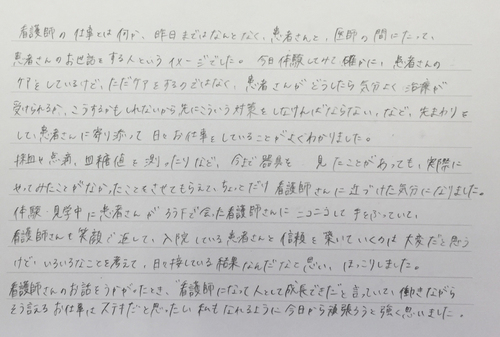 看護師の仕事とは何か、昨日まではなんとなく、患者さんと、医師の間にたって、
患者さんのお世話をする人というイメージでした。今日体験してみて確かに、患者さんの
ケアをしているけど、ただケアをするのではなく、患者さんがどうしたら気分よく治療が
受けられるか、こうするかもしれないから先にこういう対策をしなければならない、など、先まわりを
して患者さんに寄り添って日々お仕事をしていることがよくわかりました。
採血や点滴、血糖値を測ったりなど、今まで器具を 見たことがあっても、実際に
やってみたことがなかったことをさせてもらえて、ちょっとだけ看護師さんに近づけた気分になりました。
体験・見学中に患者さんがろう下で会った看護師さんにニコニコして手をふっていて、
看護師さんも笑顔で返して、入院している患者さんと信頼を築いていくのは大変だと思う
けど、いろいろなことを考えて、日々接している結果なんだなと思い、ほっこりしました。
看護師さんのお話をうかがったとき、"看護師になって人として成長できた"と言っていて、働きながら
そう言えるお仕事はステキだと思ったし、私もなれるように今日から頑張ろうと強く思いました。